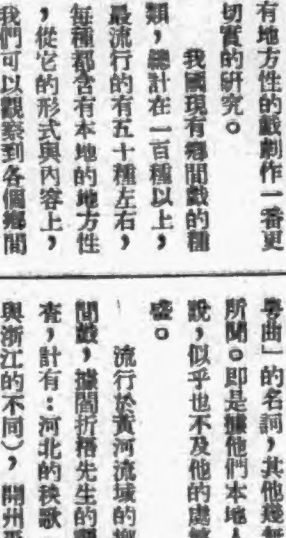 有地方性的戲劇作一番更
切實的研究。
我國現有鄉間戲的種
類，總計在一百種以上，
最流行的有五十種左右，
每種都含有本地的地方性
，從它的形式與內容上，
我們可以觀察到各個鄉間
粤曲」的名詞，其他幾
所聞。即是據他們本地人
說，似乎也不及他的處
盛。
流行於黃河流域的鄉
間戲，據閻折梧先生的調
查，計有：河北的秧歌
與浙江的不同），開州